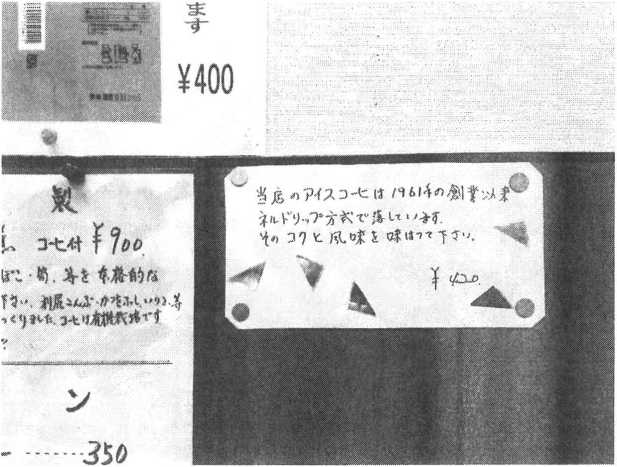 ます
¥400
製
コーヒ付 ¥900
筍、等を本格的な
下さい、利尻こんぶ・かつをぶし、いりこ、等
つくりました、コーヒは有機栽培です
ン
ー ……350
当店のアイスコーヒは1961年の創業以来
ネルドリップ方式で落しています。
そのコクと風味を味はって下さい。
¥420.